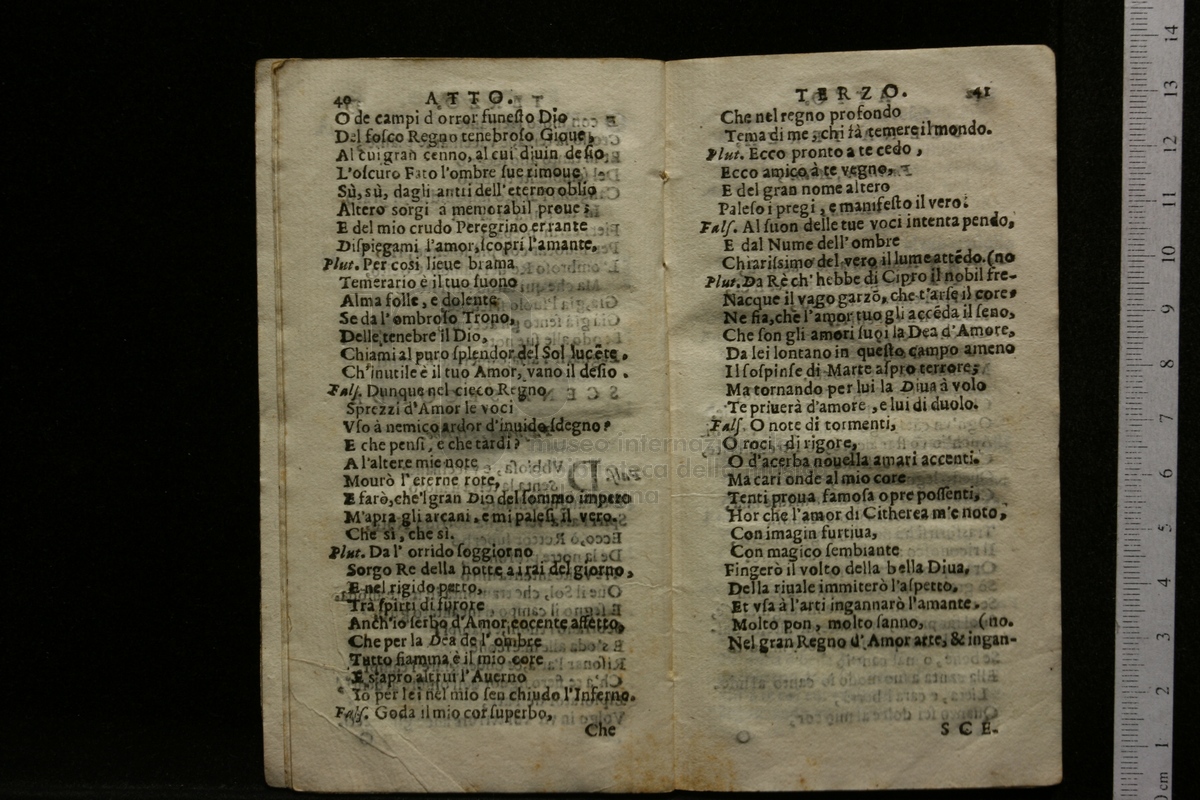 40 ATTO.
O de campi d'orror funeſto Dio
Del foſco Regno tenebroſo Gioue,
Al cui gran cenno, al cui diuin deſio,
L'oſcuro Fato l'ombre ſue rimoue,
Sù, sù, dagli antri dell'eterno oblio
Altero sorgi a memorabil proue;
E del mio crudo Peregrino errante
Diſpiegami l'amor, ſcopri l'amante,
Plut. Per così lieue brama
Temerario è il tuo ſuono
Alma folle, e dolente
Se da l'ombroſo Trono,
Delle tenebre il Dio,
Chiami al puro ſplendor del Sol lucẽte.
Ch'inutile è il tuo Amor, vano il deſio.
Falſ. Dunque nel cieco Regno
Sprezzi d'Amor le voci
Vſo à nemico ardor d'inuido ſdegno?
E che penſi, e che tardi?
A l'altere mie note
Mourò l'eterne rote,
E farò, che'l gran Dio del ſommo impero
M'apra gli arcani, e mi paleſi il vero.
Che sì, che sì.
Plut. Da l'orrido ſoggiorno
Sorgo Re della notte a i rai del giorno,
E nel rigido petto,
Tra ſpirti di furore
Anch'io ſerbo d'Amor cocente affetto,
Che per la Dea de l'ombre
Tutto fiamma è il mio core
E s'apro altrui l'Auerno
Io per lei nel mio ſen chiudo l'Inferno.
Falſ. Goda il mio cor ſuperbo,
Che
TERZO. 41
Che nel regno profondo
Tema di me, chi fà temere il mondo.
Plut. Ecco pronto a te cedo,
Ecco amico à te vegno,
E del gran nome altero
Paleſo i pregi, e manifeſto il vero.
Falſ. Al ſuon delle tue voci intenta pendo,
E dal Nume dell'ombre
Chiariſſimo del vero il lume attẽdo. (no
Plut. Da Rè ch'hebbe di Cipro il nobil fre-
Nacque il vago garzõ, che t'arſe il core,
Ne fia, che l'amor tuo gli accẽda il ſeno,
Che ſon gli amori ſuoi la Dea d'Amore,
Da lei lontano in queſto campo ameno
Il ſoſpinſe di Marte aſpro terrore;
Ma tornando per lui la Diua à volo
Te priuerà d'amore, e lui di duolo.
Falſ. O note di tormenti,
O roci, di rigore,
O d'acerba nouella amari accenti.
Ma cari onde al mio core
Tenti proua famoſa opre poſſenti,
Hor che l'amor di Citherea m'e noto,
Con imagin furtiua,
Con magico ſembiante
Fingerò il volto della bella Diua,
Della riuale immiterò l'aſpetto,
Et vſa à l'arti ingannarò l'amante.
Molto pon, molto ſanno, (no.
Nel gran Regno d'Amor arte, & ingan-
SCE.